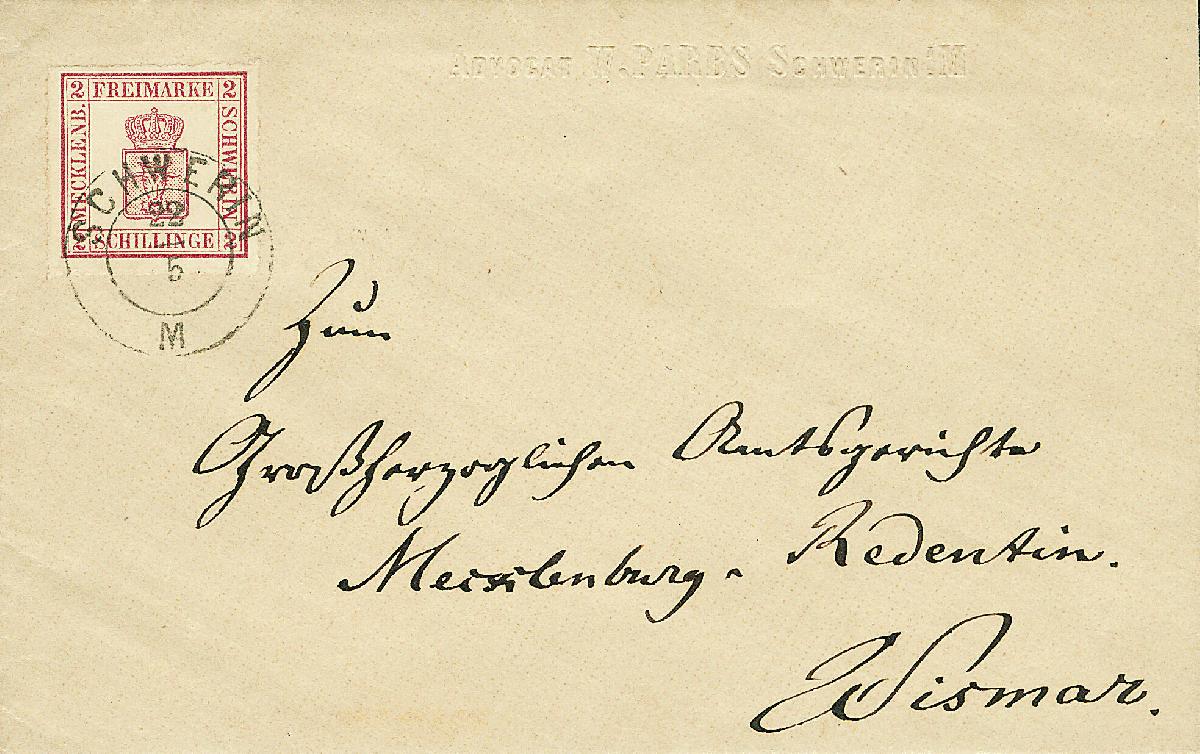 ADVOCAT W. PARBS SCHWERIN i/M
2 FREIMARKE 2
MECKLENB.
SCHWERIN
2 SCHILLINGE 2
SCHWERIN
22
5
M
Zum
Großherzoglichen Amtsgerichte
Mecklenburg - Redentin.
Wismar.